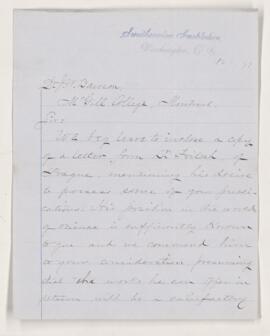 Smithsonian Institution,
Washington, D.C.
Dr. J. W. Dawson,
McGill College, Montreal.
Sir:
We beg leave to enclose a copy
of a letter from Dr. Fritsch of
Prague, mentioning his desire
to possess some of your publi-
cations. His position in the world
of science is sufficiently known
to you and we commend him
to your consideration presuming
that the works he can offer in
return will be a satisfactory